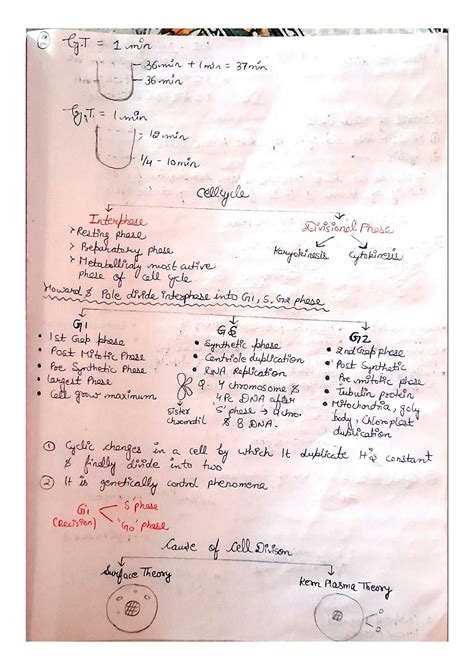 2
G.T = 1 min
36min + 1min = 37min
36min
G.T. = 1min
12min
1/4 - 10min
Cell cycle
Interphase
Divisional Phase
> Resting phase
> Preparatory phase
Karyokinesis Cytokinesis
> Metabollicaly most active
phase of cell cycle
Howard & Pole divide interphase into G1, S, G2 phase
G1
• 1st Gap phase
• Post Mitotic Phase
• Pre Synthetic Phase
• largest Phase
• Cell grow maximum
• Synthetic phase
• Centriole duplication
• DNA Replication
Q. 4 chromosome &
4Pc DNA after
'S' phase → 4 chro.
& 8 DNA.
Sister
chromatid
G2
• 2nd Gap phase
• Post Synthetic
• Pre mitotic phase
• Tubulin protein
• Mitochondria, golgy
body, Chloroplast
duplication
1 Cyclic changes in a cell by which It duplicate constant
& finally divide into two
2 It is genetically control phenomena
G1
(Decision)
'S' phase
'G0' phase
Cause of Cell Divison
Surface Theory
Kern Plasma Theory